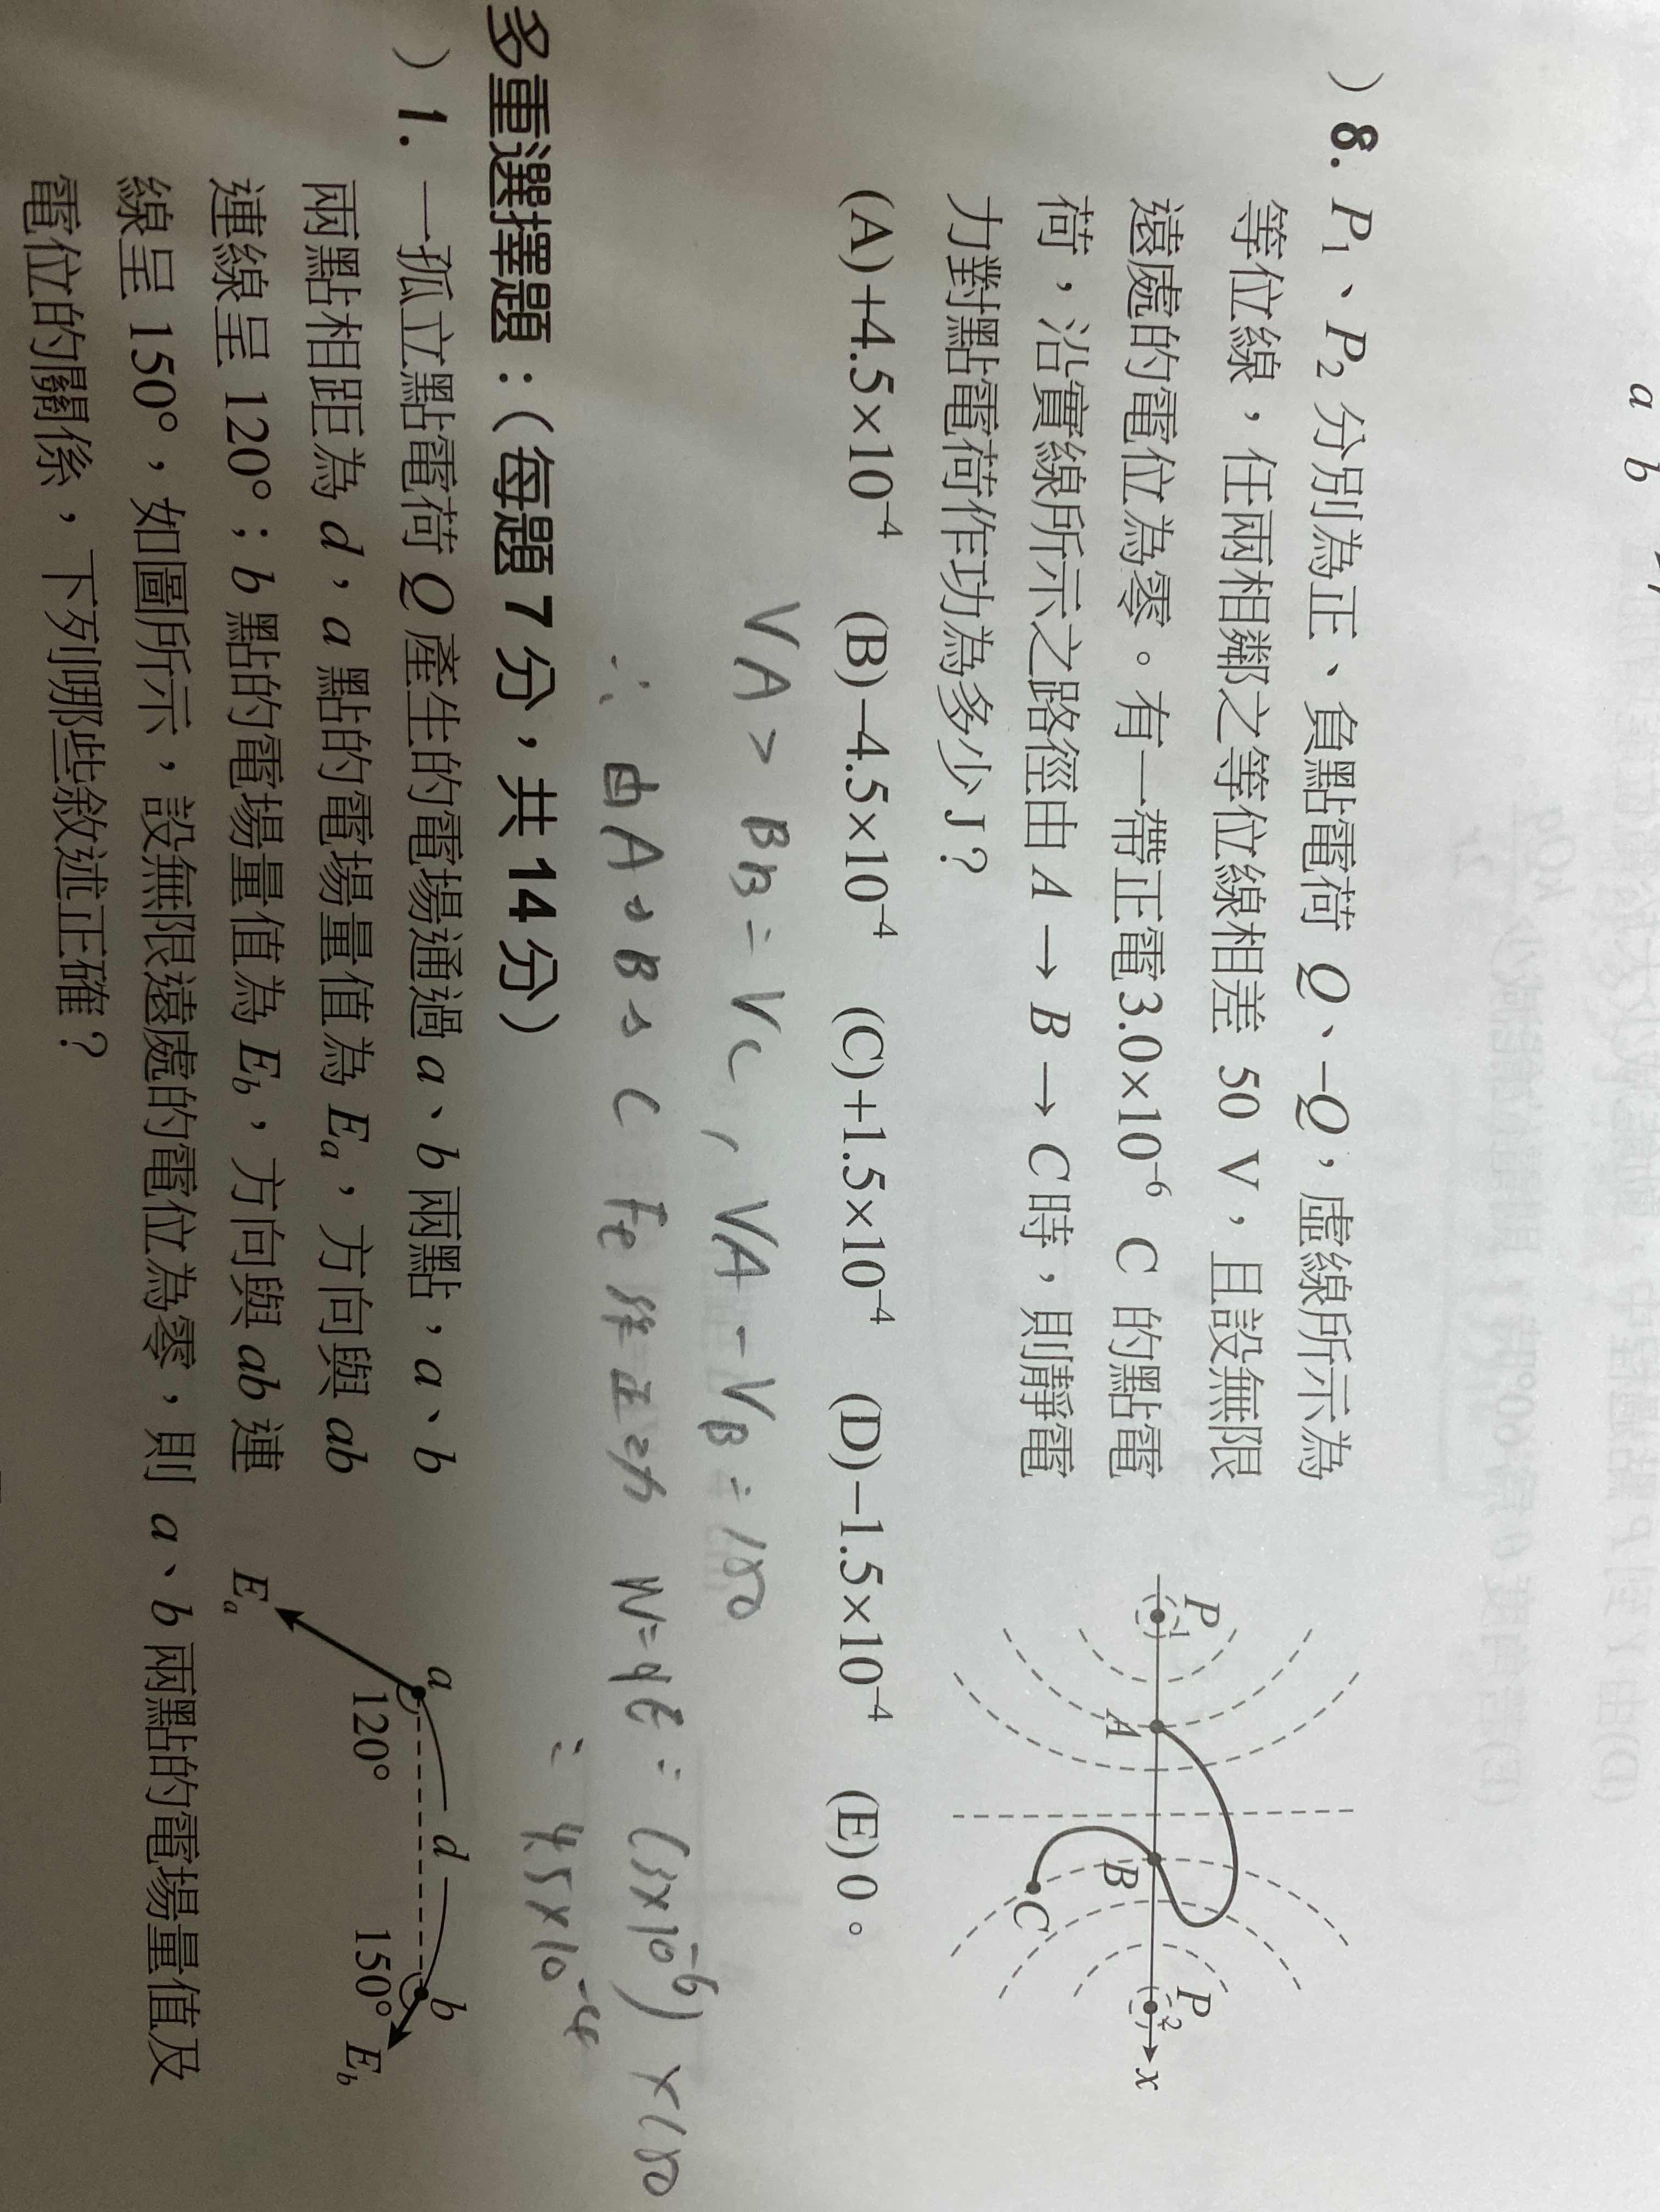 a b
) 8. P₁、P₂ 分別為正、負點電荷 Q、−Q，虛線所示為
等位線，任兩相鄰之等位線相差 50 V，且設無限
遠處的電位為零。有一帶正電3.0×10⁻⁶ C 的點電
荷，沿實線所示之路徑由 A → B → C時，則靜電
力對點電荷作功為多少 J？
P₁ A B C P₂ x
(A)+4.5×10⁻⁴ (B)−4.5×10⁻⁴ (C)+1.5×10⁻⁴ (D)−1.5×10⁻⁴ (E) 0。
VA > BB = VC , VA − VB = 150
∴ 由 A → B → C FE 作正功 W = qE = (3×10⁻⁶) × 150
= 4.5×10⁻⁴
多重選擇題：(每題 7 分，共 14 分)
) 1. 一孤立點電荷 Q 產生的電場通過 a、b 兩點，a、b
兩點相距為 d，a 點的電場量值為 Eₐ，方向與 ab
連線呈 120°；b 點的電場量值為 E_b，方向與 ab 連
線呈 150°，如圖所示，設無限遠處的電位為零，則 a、b 兩點的電場量值及
電位的關係，下列哪些敘述正確？
a d b
120° 150°
Eₐ E_b